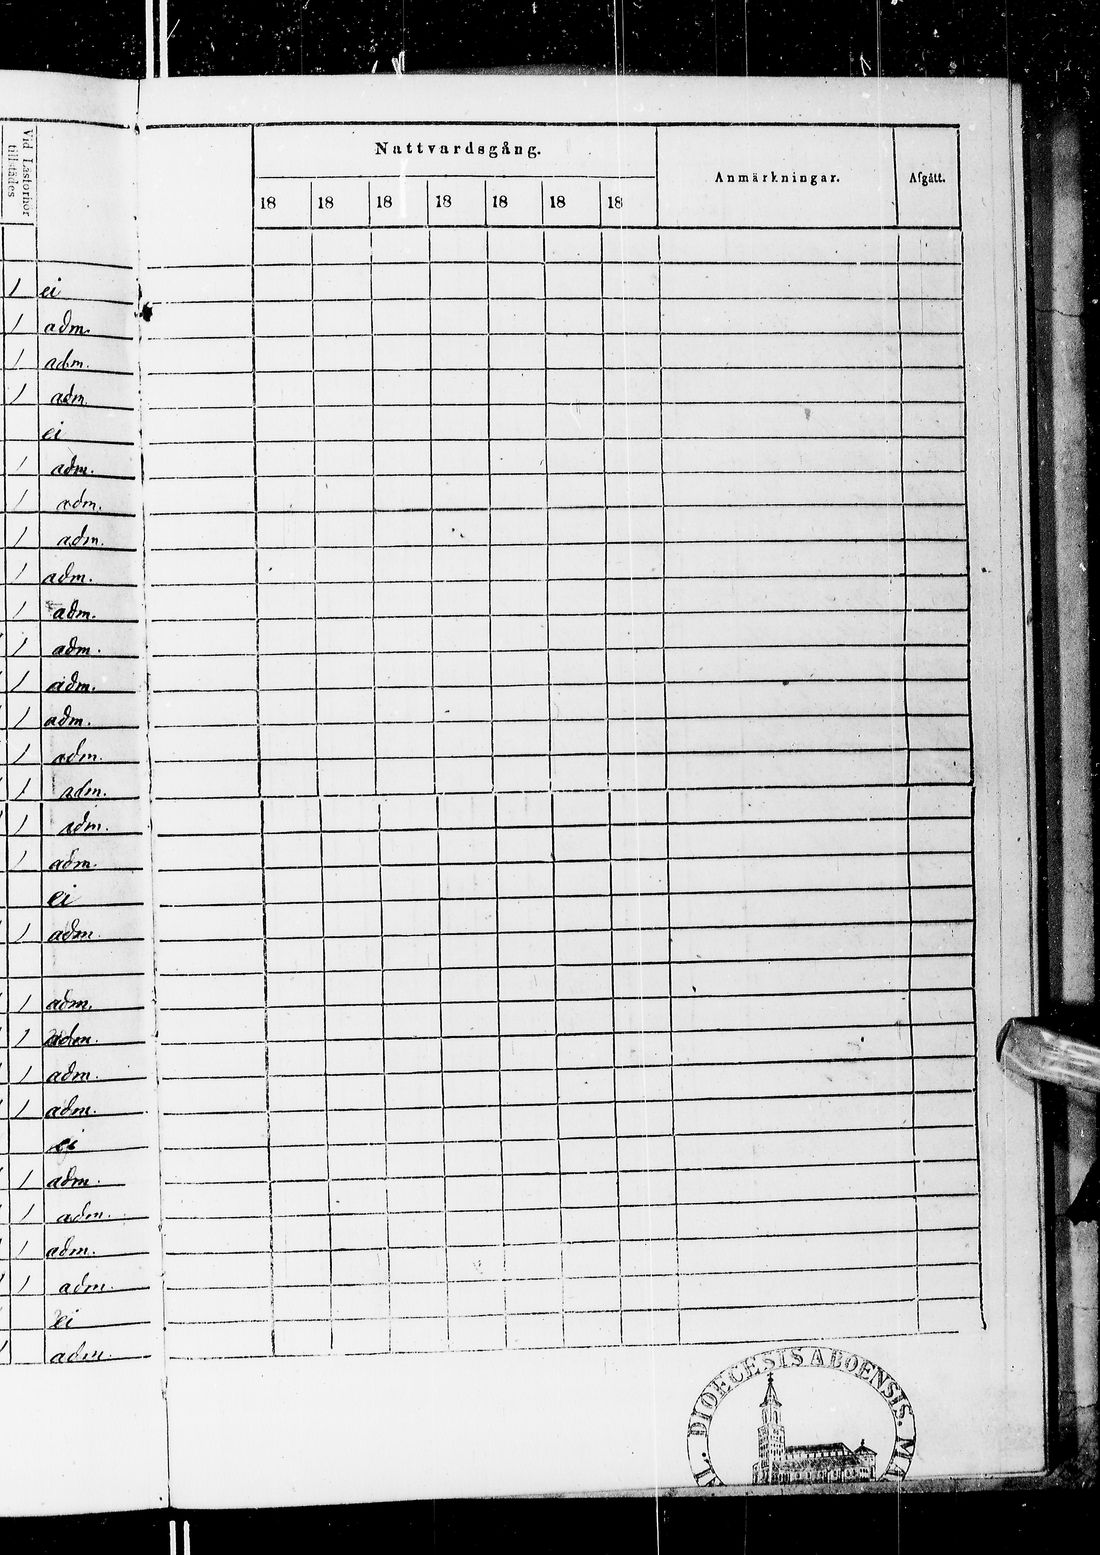 Vid Läsförhör
tillstädes
Nattvardsgång.
Anmärkningar.
Afgått.
18 18 18 18 18 18 18
1 ei
1 adm.
1 adm.
1 adm.
ei
1 adm.
1 adm.
1 adm.
1 adm.
1 adm.
1 adm.
1 adm.
1 adm.
1 adm.
1 adm.
1 adm.
1 adm.
ei
1 adm.
1 adm.
1 adm.
1 adm.
1 adm.
ei
1 adm.
1 adm.
1 adm.
1 adm.
ei
adm.
DIOECESIS ABOENSIS. MA